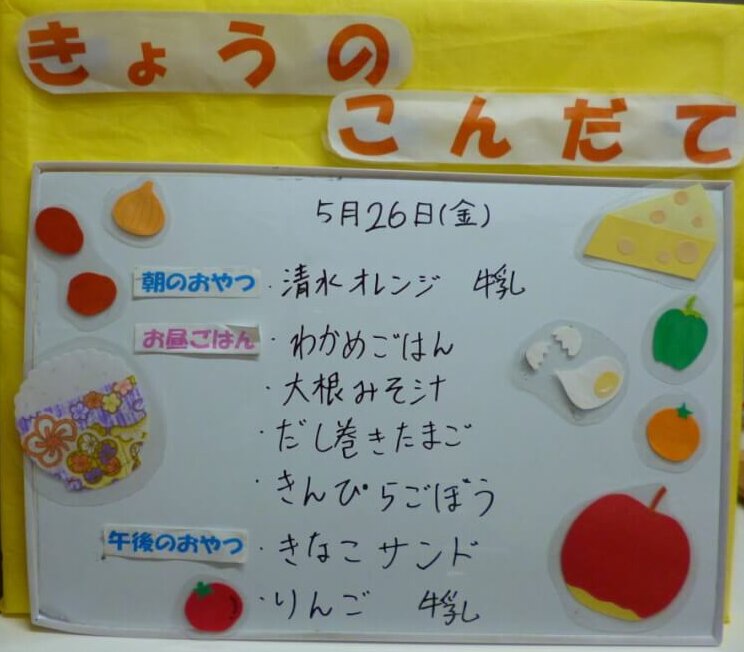 きょうの
こんだて
5月26日(金)
朝のおやつ ・清水オレンジ 牛乳
お昼ごはん ・わかめごはん
・大根みそ汁
・だし巻きたまご
・きんぴらごぼう
午後のおやつ ・きなこサンド
・りんご 牛乳